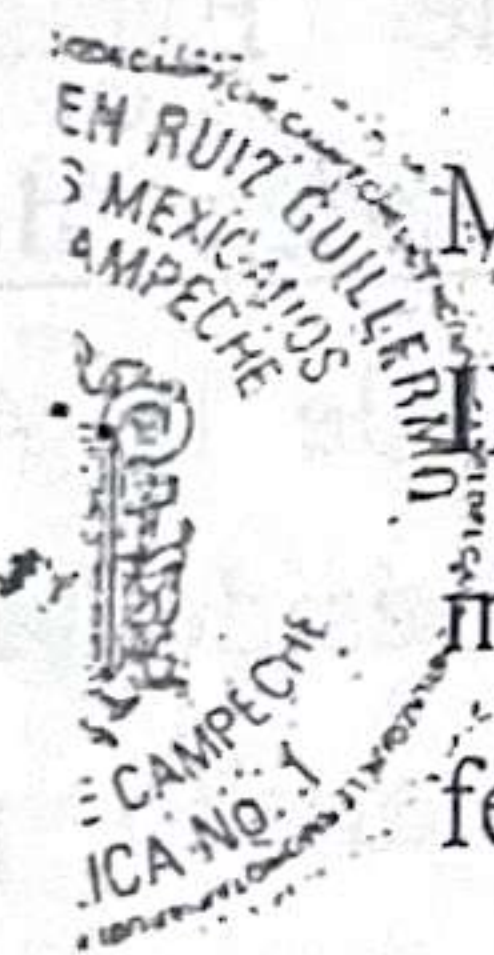 EN RUIZ GUILLERMO
S MEXICANOS
AMPECHE
E CAMPECHE
ICA No. 1
M
m
fe